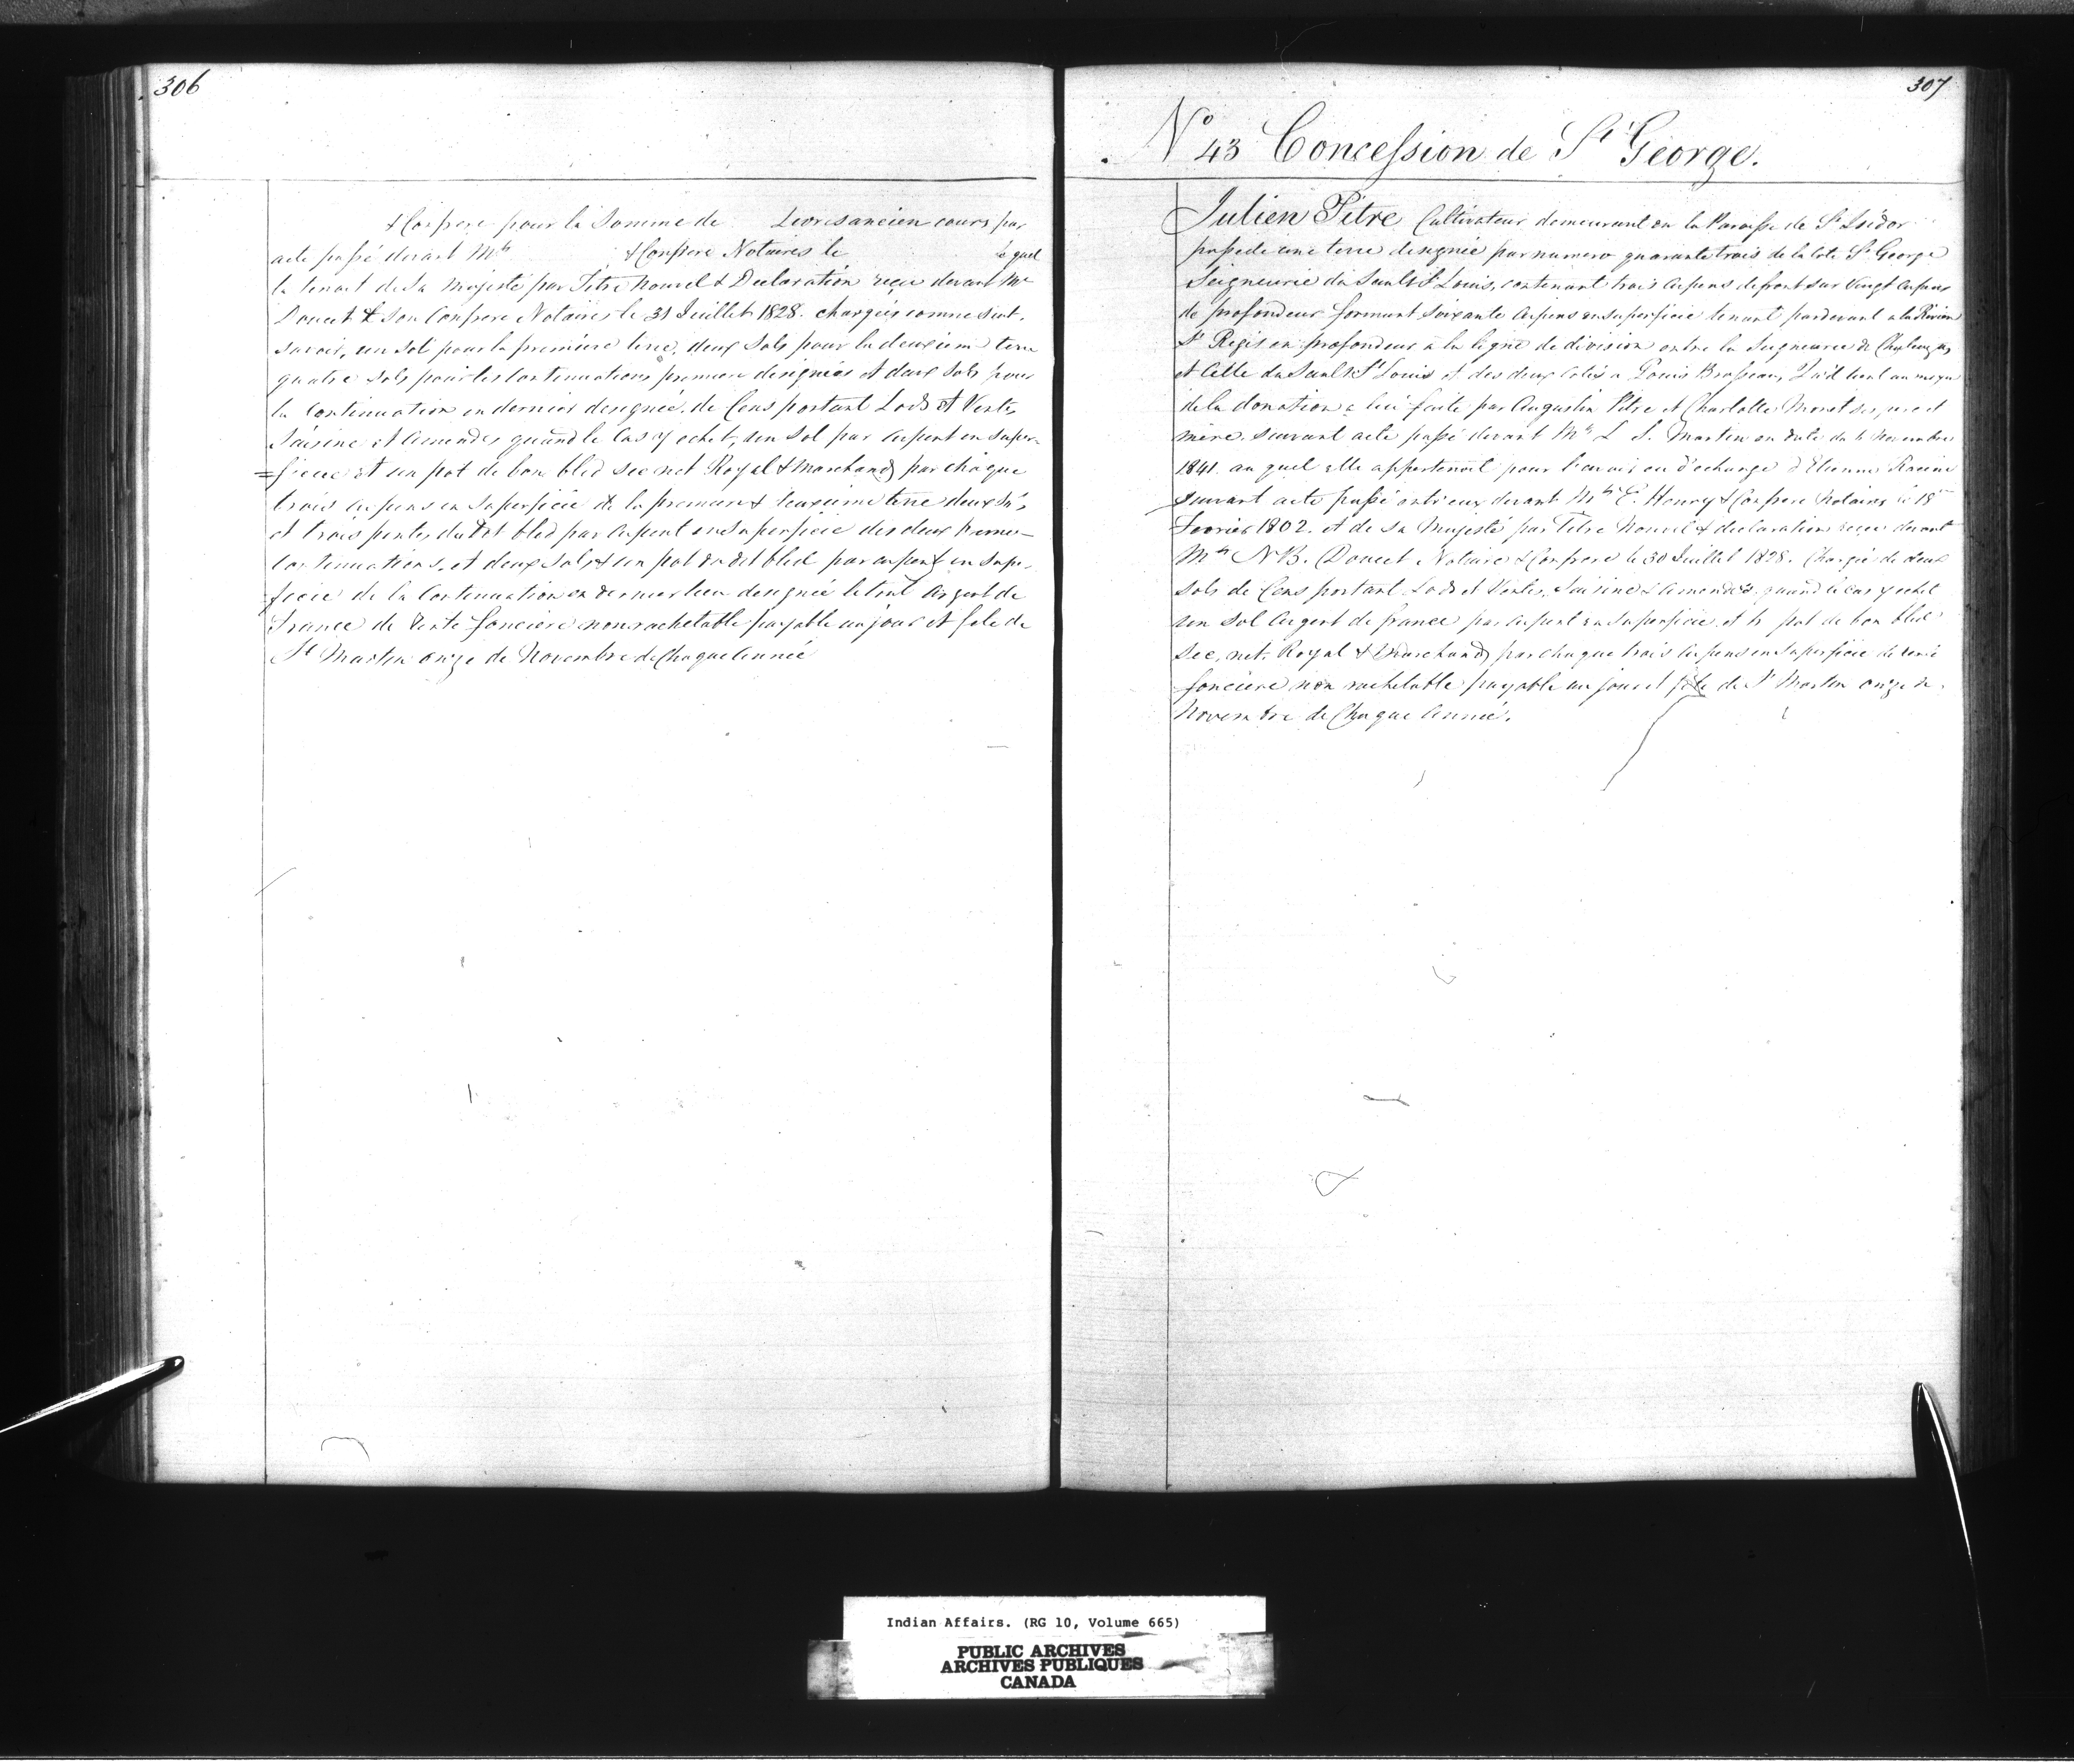 306
& Confrere pour la Somme de Livres ancien cours par
acte passé devant Mtre & Confrere Notaires le le quel
la tenoit de Sa Majesté par Titre Nouvel & Declaration reçu devant Mtre
Doucet & Son Confrere Notaires le 31 Juillet 1828. chargées comme suit,
savoir, un sol pour la première terre, deux sols pour la deuxieme terre
quatre sols pour les Continuations premiere designées et deux sols pour
la Continuation en dernier designée, de Cens portant Lods et Ventes
Saisine et Amendes quand le Cas y echet, un Sol par arpent en super=
=ficie et un pot de bon bled sec net Royal & Marchand par chaque
trois arpens en Superficie de la premiere & deuxieme terre deux
et trois pintes du dit bled par arpent en Superficie des deux
Continuations, et deux Sols & un pot du dit bled par arpent en super
=ficie de la Continuation en dernier lieu designée le tout argent de
France de rente fonciere non rachetable payable au jour et fete de
St Martin onze de Novembre de Chaque Année
307
No 43 Concession de St George.
Julien Pitre Cultivateur demeurant en la Paroisse de St Isidor
possede une terre designée par numero quarante trois de la Cote St George
Seigneurie du Sault St Louis, contenant trois arpens de front sur vingt arpens
de profondeur formant soixante arpens en superficie tenant par devant a la Riviere
St Regis en profondeur a la ligne de division entre la Seigneurie de Chateaugay
et Celle du Sault St Louis et des deux cotés a Louis Brosseau, Qu'il tient au moyen
de la donation a lui faite par Augustin Pitre et Charlotte ses pere et
mere, suivant acte passé devant Mtre L S. Martin en date du 6 Novembre
1841. au quel elle appartenoit pour l'avoir eu d'echange d'Etienne Racine
suivant acte passé entr'eux devant Mtre E. Henry & Confrere Notaires le 15
Fevrier 1802. et de Sa Majesté par Titre Nouvel & declaration reçu devant
Mtre N B. Doucet Notaire & Confrere le 30 Juillet 1828. Chargée de deux
sols de Cens portant Lods et Ventes, Saisine & Amendes quand le cas y echet
un Sol Argent de france par arpent en Superficie et pot de bon bled
Sec, net, Royal & Marchand par chaque trois arpens en Superficie de rente
fonciere non rachetable payable au jour et fete de St Martin onze de
Novembre de Chaque Année.
Indian Affairs. (RG 10, Volume 665)
PUBLIC ARCHIVES
ARCHIVES PUBLIQUES
CANADA